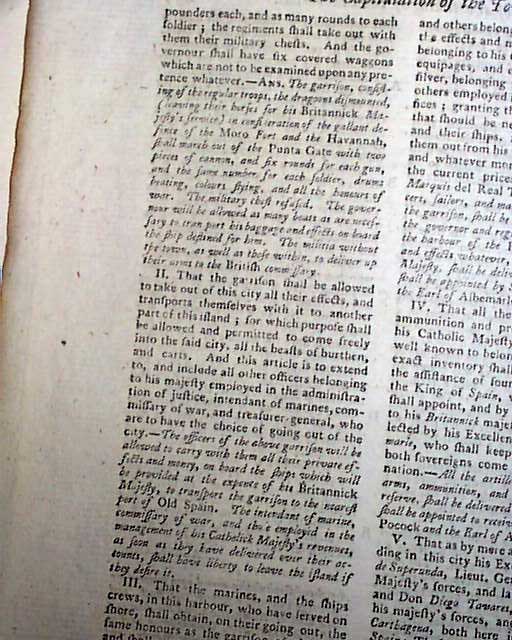 The Capitulation of the To
pounders each, and as many rounds to each
ſoldier; the regiments ſhall take out with
them their military cheſts. And the go-
vernour ſhall have ſix covered waggons
which are not to be examined upon any pre-
tence whatever.—ANS. The garriſon, conſiſt-
ing of the regular troops, the dragoons diſmounted,
(leaving their horſes for his Britannick Ma-
jeſty's ſervice) in conſideration of the gallant de-
fence of the Moro Fort and the Havannah,
ſhall march out of the Punta Gate with two
pieces of cannon, and ſix rounds for each gun,
and the ſame number for each ſoldier, drums
beating, colours flying, and all the honours of
war. The military cheſt refuſed. The gover-
nour will be allowed as many boats as are neceſ-
ſary to tranſport his baggage and effects on board
the ſhip deſtined for him. The militia without
the town, as well as thoſe within, to deliver up
their arms to the Britiſh commiſſary.
II. That the garriſon ſhall be allowed
to take out of this city all their effects, and
tranſports themſelves with it to another
part of this iſland; for which purpoſe ſhall
be allowed and permitted to come freely
into the ſaid city, all the beaſts of burthen,
and carts. And this article is to extend
to, and include all other officers belonging
to his majeſty employed in the adminiſtra-
tion of juſtice, intendant of marines, com-
miſſary of war, and treaſurer-general, who
are to have the choice of going out of the
city.—The officers of the above garriſon will be
allowed to carry with them all their private ef-
fects and money, on board the ſhips which will
be provided at the expence of his Britannick
Majeſty, to tranſport the garriſon to the neareſt
port of Old Spain. The intendant of marine,
commiſſary of war, and thoſe employed in the
management of his Catholick Majeſty's revenues,
as ſoon as they have delivered over their ac-
counts, ſhall have liberty to leave the iſland if
they deſire it.
III. That the marines, and the ſhips
crews, in this harbour, who have ſerved on
ſhore, ſhall obtain, on their going out, the
ſame honours as the garriſon
and others belong
the effects and m
belonging to his
equipages, and
ſilver, belonging
others employed i
fices; granting th
that ſhould be ne
and their ſhips.
them out from his
and whatever mon
the current price
Marquis del Real T
cers, ſailors, and ma
the garriſon, ſhall be
the governor and reg
the harbour of the
and effects whatever,
Majeſty, ſhall be deliv
ſhall be appointed by S
the Earl of Albemarl
IV. That all the
ammunition and pr
his Catholic Majeſty
well known to belon
exact inventory ſhall
the aſſiſtance of four
the King of Spain,
ſhall appoint, and by
to his Britannick majeſ
lected by his Excellen
marle, who ſhall keep
both ſovereigns come
nation.—All the artille
arms, ammunition, and
reſerve, ſhall be delivered
ſhall be appointed to receive
Pocock and the Earl of A
V. That as by mere a
ding in this city his Ex
de Superunda, Lieut. Ge
Majeſty's forces, and la
and Don Diego Tavares,
his majeſty's forces, and
Carthagena, both here